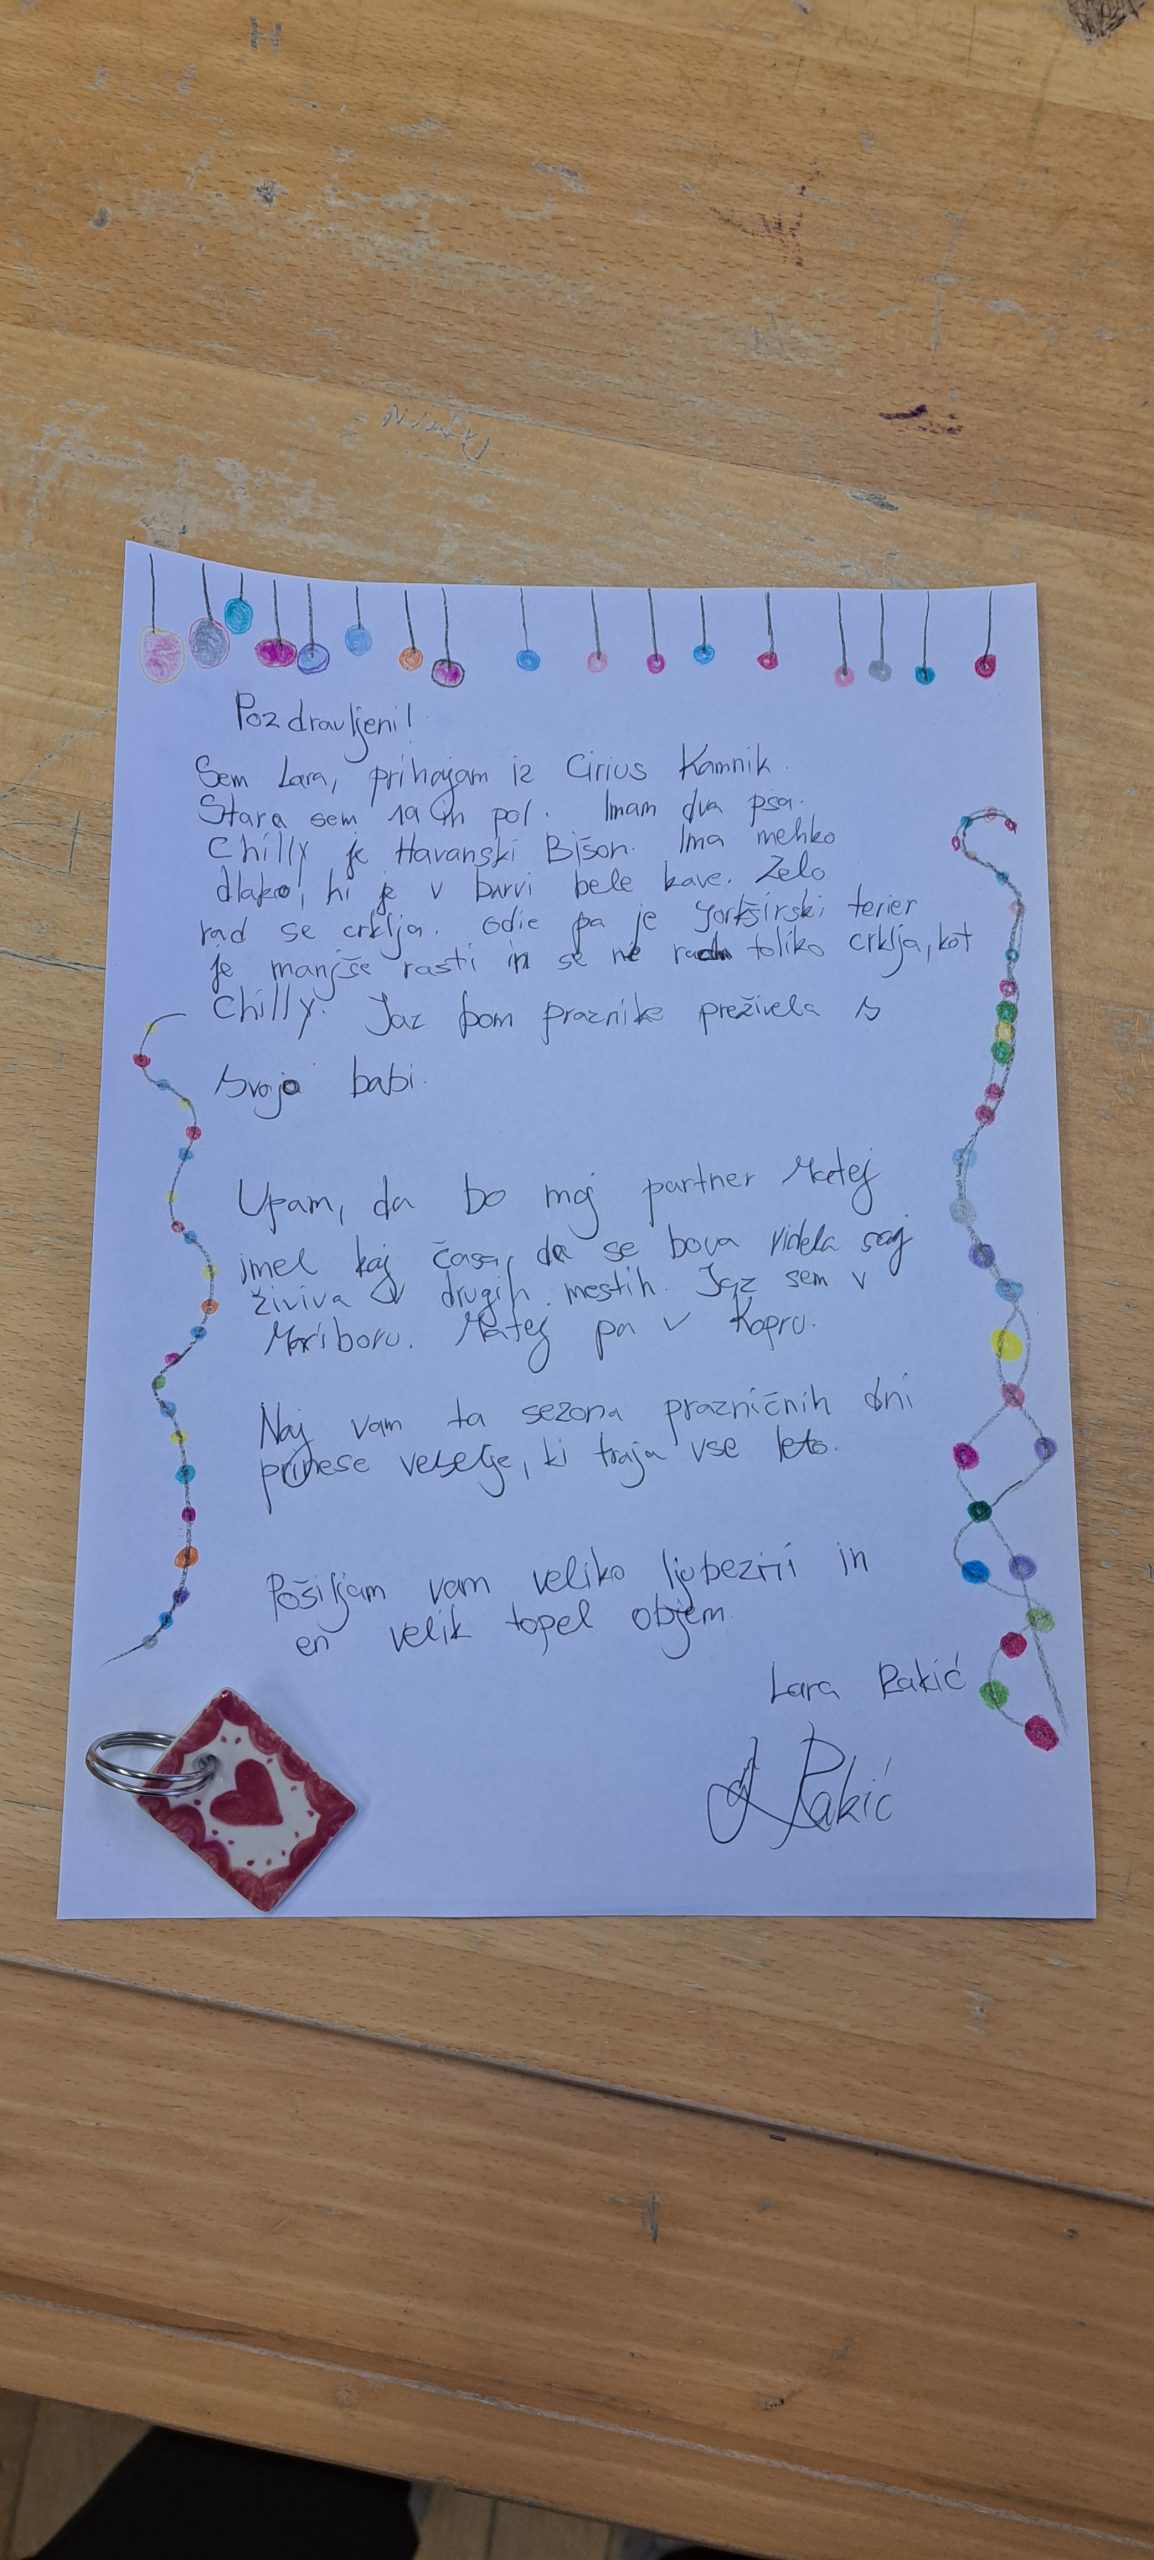 Pozdravljeni!
Sem Lara, prihajam iz Cirius Kamnik.
Stara sem 19 in pol. Imam dva psa.
Chilly je Havanski Bišon. Ima mehko
dlako, ki je v barvi bele kave. Zelo
rad se crklja. Odie pa je Jorkširski terier
je manjše rasti in se ne rad toliko crklja, kot
Chilly. Jaz bom praznike preživela s
svojo babi.
Upam, da bo moj partner Matej
imel kaj časa, da se bova videla saj
živiva v drugih mestih. Jaz sem v
Mariboru. Matej pa v Kopru.
Naj vam ta sezona prazničnih dni
prinese veselje, ki traja vse leto.
Pošiljam vam veliko ljubezni in
en velik topel objem.
Lara Rakić
Rakić